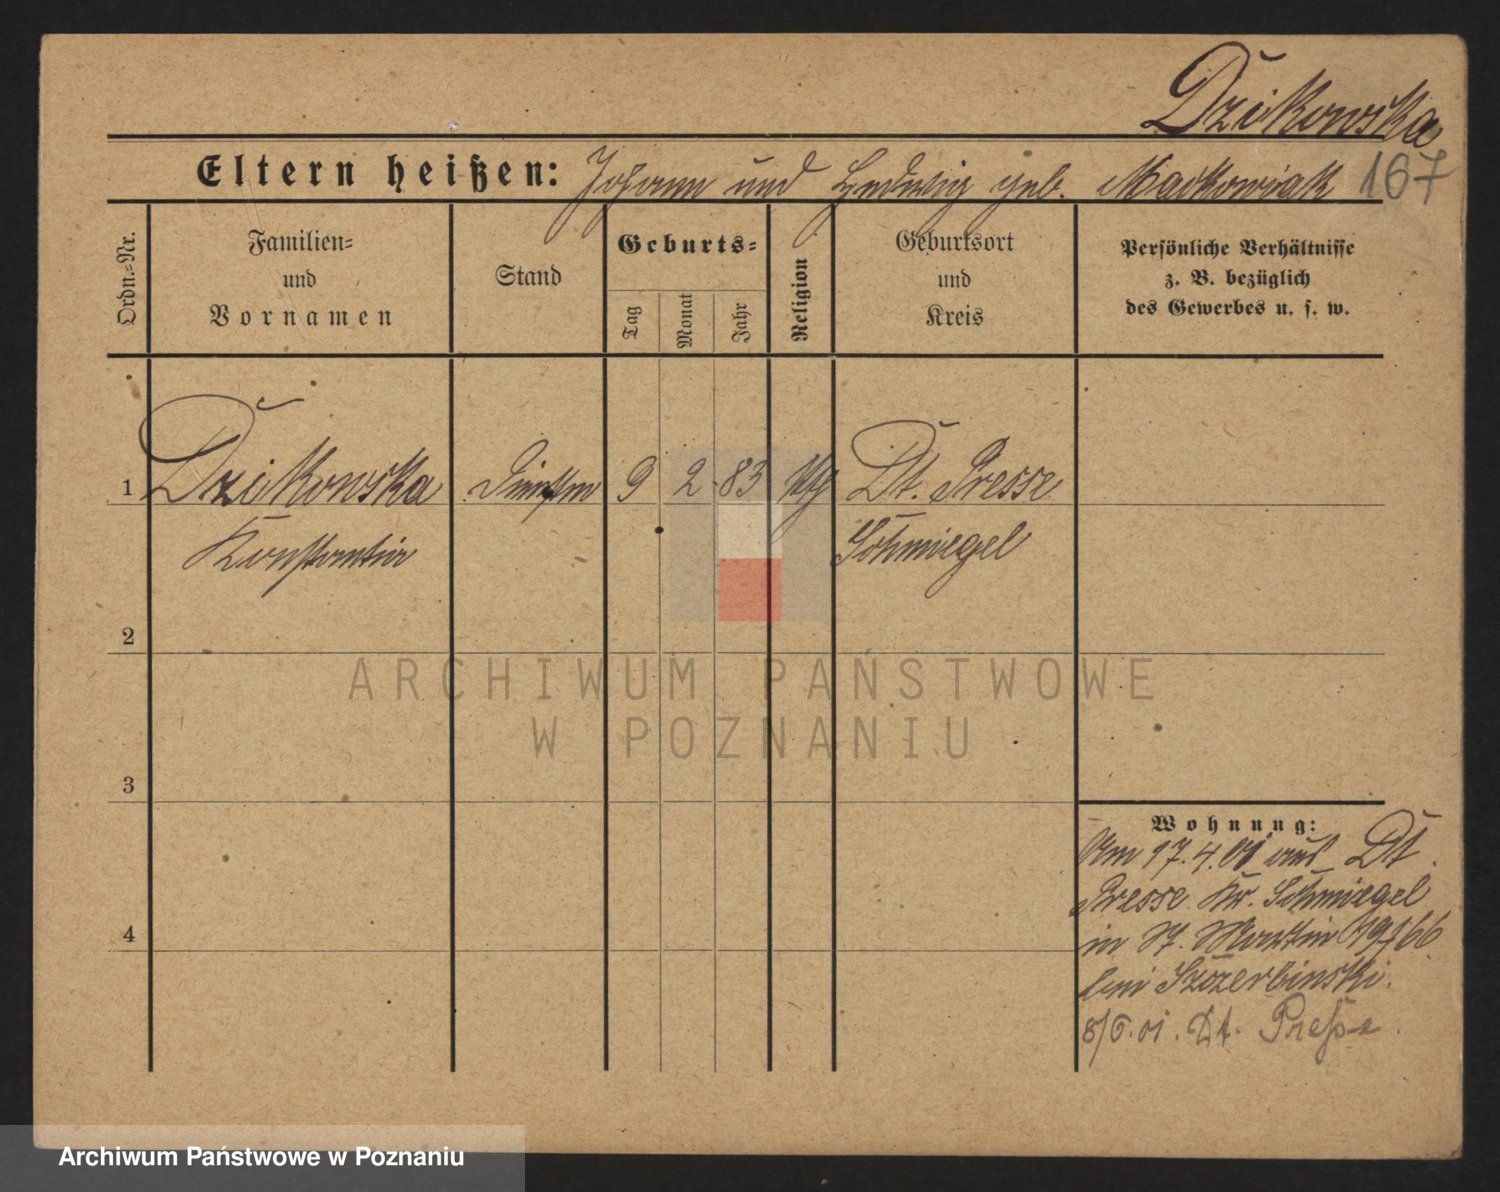 Dzikowska
Eltern heißen: Johann und Hedwig geb. Maćkowiak 167
Ordn.-Nr.
Familien-
und
Vornamen
Stand
Geburts-
Tag
Monat
Jahr
Religion
Geburtsort
und
Kreis
Persönliche Verhältnisse
z. B. bezüglich
des Gewerbes u. s. w.
1 Dzikowska 9 2 83 Dt. Presse
Konstantin Schmiegel
2
3
4
ARCHIWUM PAŃSTWOWE
W POZNANIU
Wohnung:
Am 17.4.01 aus Dt.
Presse Kr. Schmiegel
in St. Martin
bei Szczerbinski.
8/6.01. Dt. Presse.
Archiwum Państwowe w Poznaniu